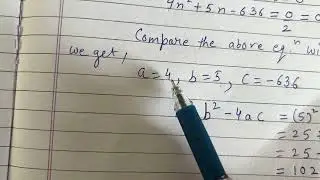 4n² + 5n - 636 = 0
2 0
Compare the above eqⁿ wi
we get,
a = 4, b = 5, c = -636
b² - 4ac = (5)²
= 25
= 25 -
= 102